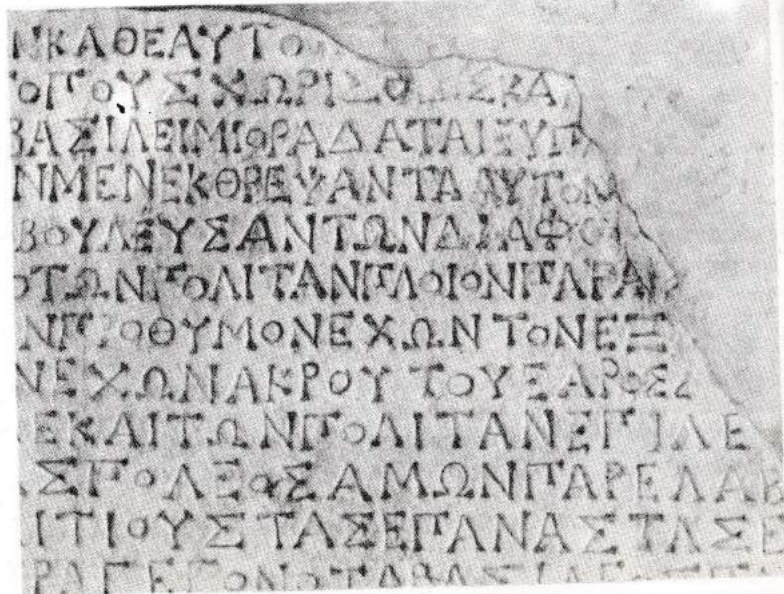 ΝΚΑΘΕΑΥΤΟ
ΤΟΠΟΥΣΧΩΡΙΣΘΕΙΣΚΑ
ΒΑΣΙΛΕΙΜΙΘΡΑΔΑΤΑΙΕΥΠ
ΝΜΕΝΕΚΘΡΕΨΑΝΤΑΑΥΤΟΝ
ΒΟΥΛΕΥΣΑΝΤΩΝΔΙΑΦΥ
ΟΤΩΝΠΟΛΙΤΑΝΠΛΟΙΟΝΠΑΡΑ
ΝΠΡΟΘΥΜΟΝΕΧΩΝΤΟΝΕΞ
ΝΕΧΩΝΑΚΡΟΥΤΟΥΕΑΡΟΣΣ
ΕΚΑΙΤΩΝΠΟΛΙΤΑΝΕΠΙΛΕ
ΑΣΠΟΛΕΟΣΑΜΩΝΠΑΡΕΛΑΒ
ΙΤΙΟΥΣΤΑΣΕΠΑΝΑΣΤΑΣΕ
ΑΡΑΓΕΓΟΝΟΤΑΒΑΣΙΛΕ